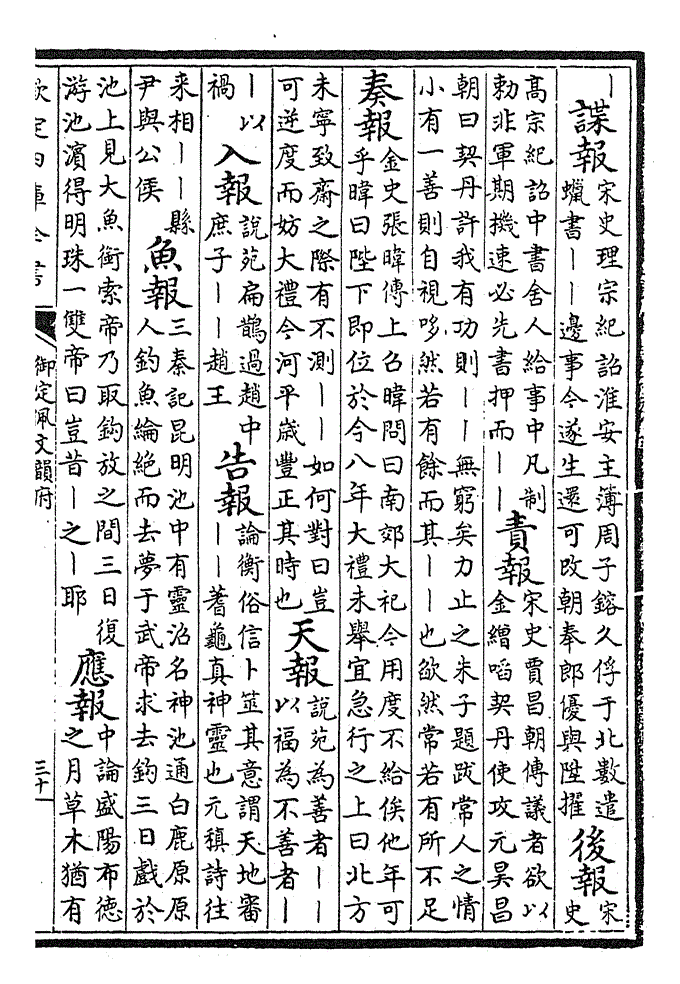 ｜諜報宋史理宗紀詔淮安主簿周子鎔久俘于北數遣
蠟書｜｜邊事今遂生還可改朝奉郎優與陞擢後報宋
史
高宗紀詔中書舍人給事中凡制
勅非軍期機速必先書押而｜｜責報宋史賈昌朝傳議者欲以
金繒啗契丹使攻元昊昌
朝曰契丹許我有功則｜｜無窮矣力止之朱子題跋常人之情
小有一善則自視哆然若有餘而其｜｜也欿然常若有所不足
奏報金史張暐傳上召暐問曰南郊大祀今用度不給俟他年可
乎暐曰陛下即位於今八年大禮未舉宜急行之上曰北方
未寧致齋之際有不測｜｜如何對曰豈
可逆度而妨大禮今河平歲豐正其時也天報說苑為善者｜｜
以福為不善者｜
｜以
禍入報說苑扁鵲過趙中
庶子｜｜趙王告報論衡俗信卜筮其意謂天地審
｜｜蓍龜真神靈也元稹詩往
來相｜｜縣
尹與公侯魚報三秦記昆明池中有靈沼名神池通白鹿原原
人釣魚綸絕而去夢于武帝求去鈎三日戲於
池上見大魚銜索帝乃取鈎放之間三日復
游池濱得明珠一雙帝曰豈昔｜之｜耶應報中論盛陽布德
之月草木猶有
欽定四庫全書
御定佩文韻府
三十